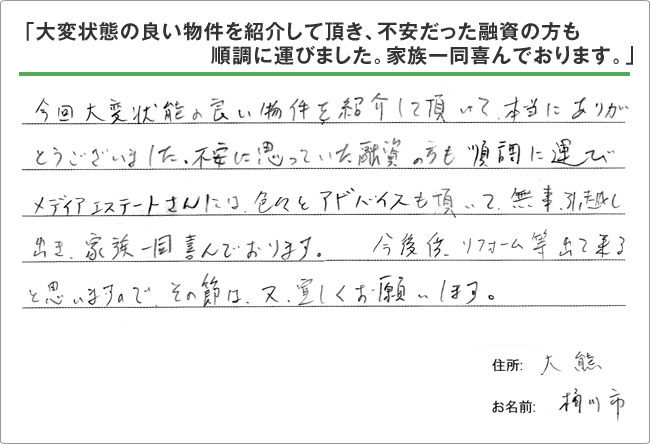 「大変状態の良い物件を紹介して頂き、不安だった融資の方も
順調に運びました。家族一同喜んでおります。」
今回大変状態の良い物件を紹介して頂いて、本当にありが
とうございました。不安に思っていた融資の方も順調に運び
メディアエステートさんには、色々とアドバイスも頂いて、無事、引越し
出き、家族一同喜んでおります。 今後俊、リフォーム等出て来る
と思いますので、その節は、又、宜しくお願いします。
住所: 大熊
お名前: 桶川市